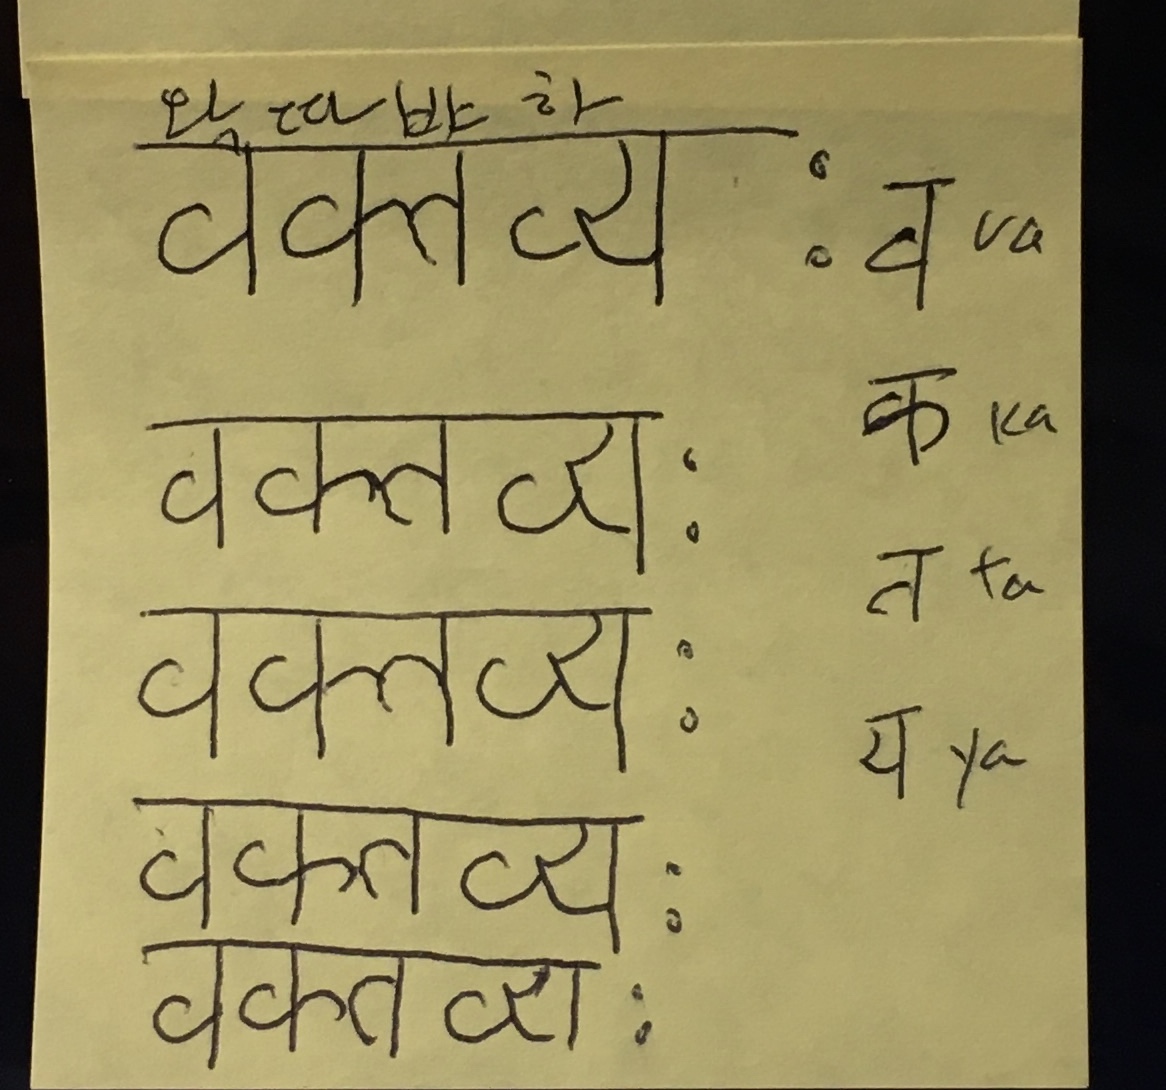 왁 따 뱌 하
वक्तव्यः
वक्तव्यः
वक्तव्यः
वक्तव्यः
वक्तव्यः
व va
क ka
त ta
य ya